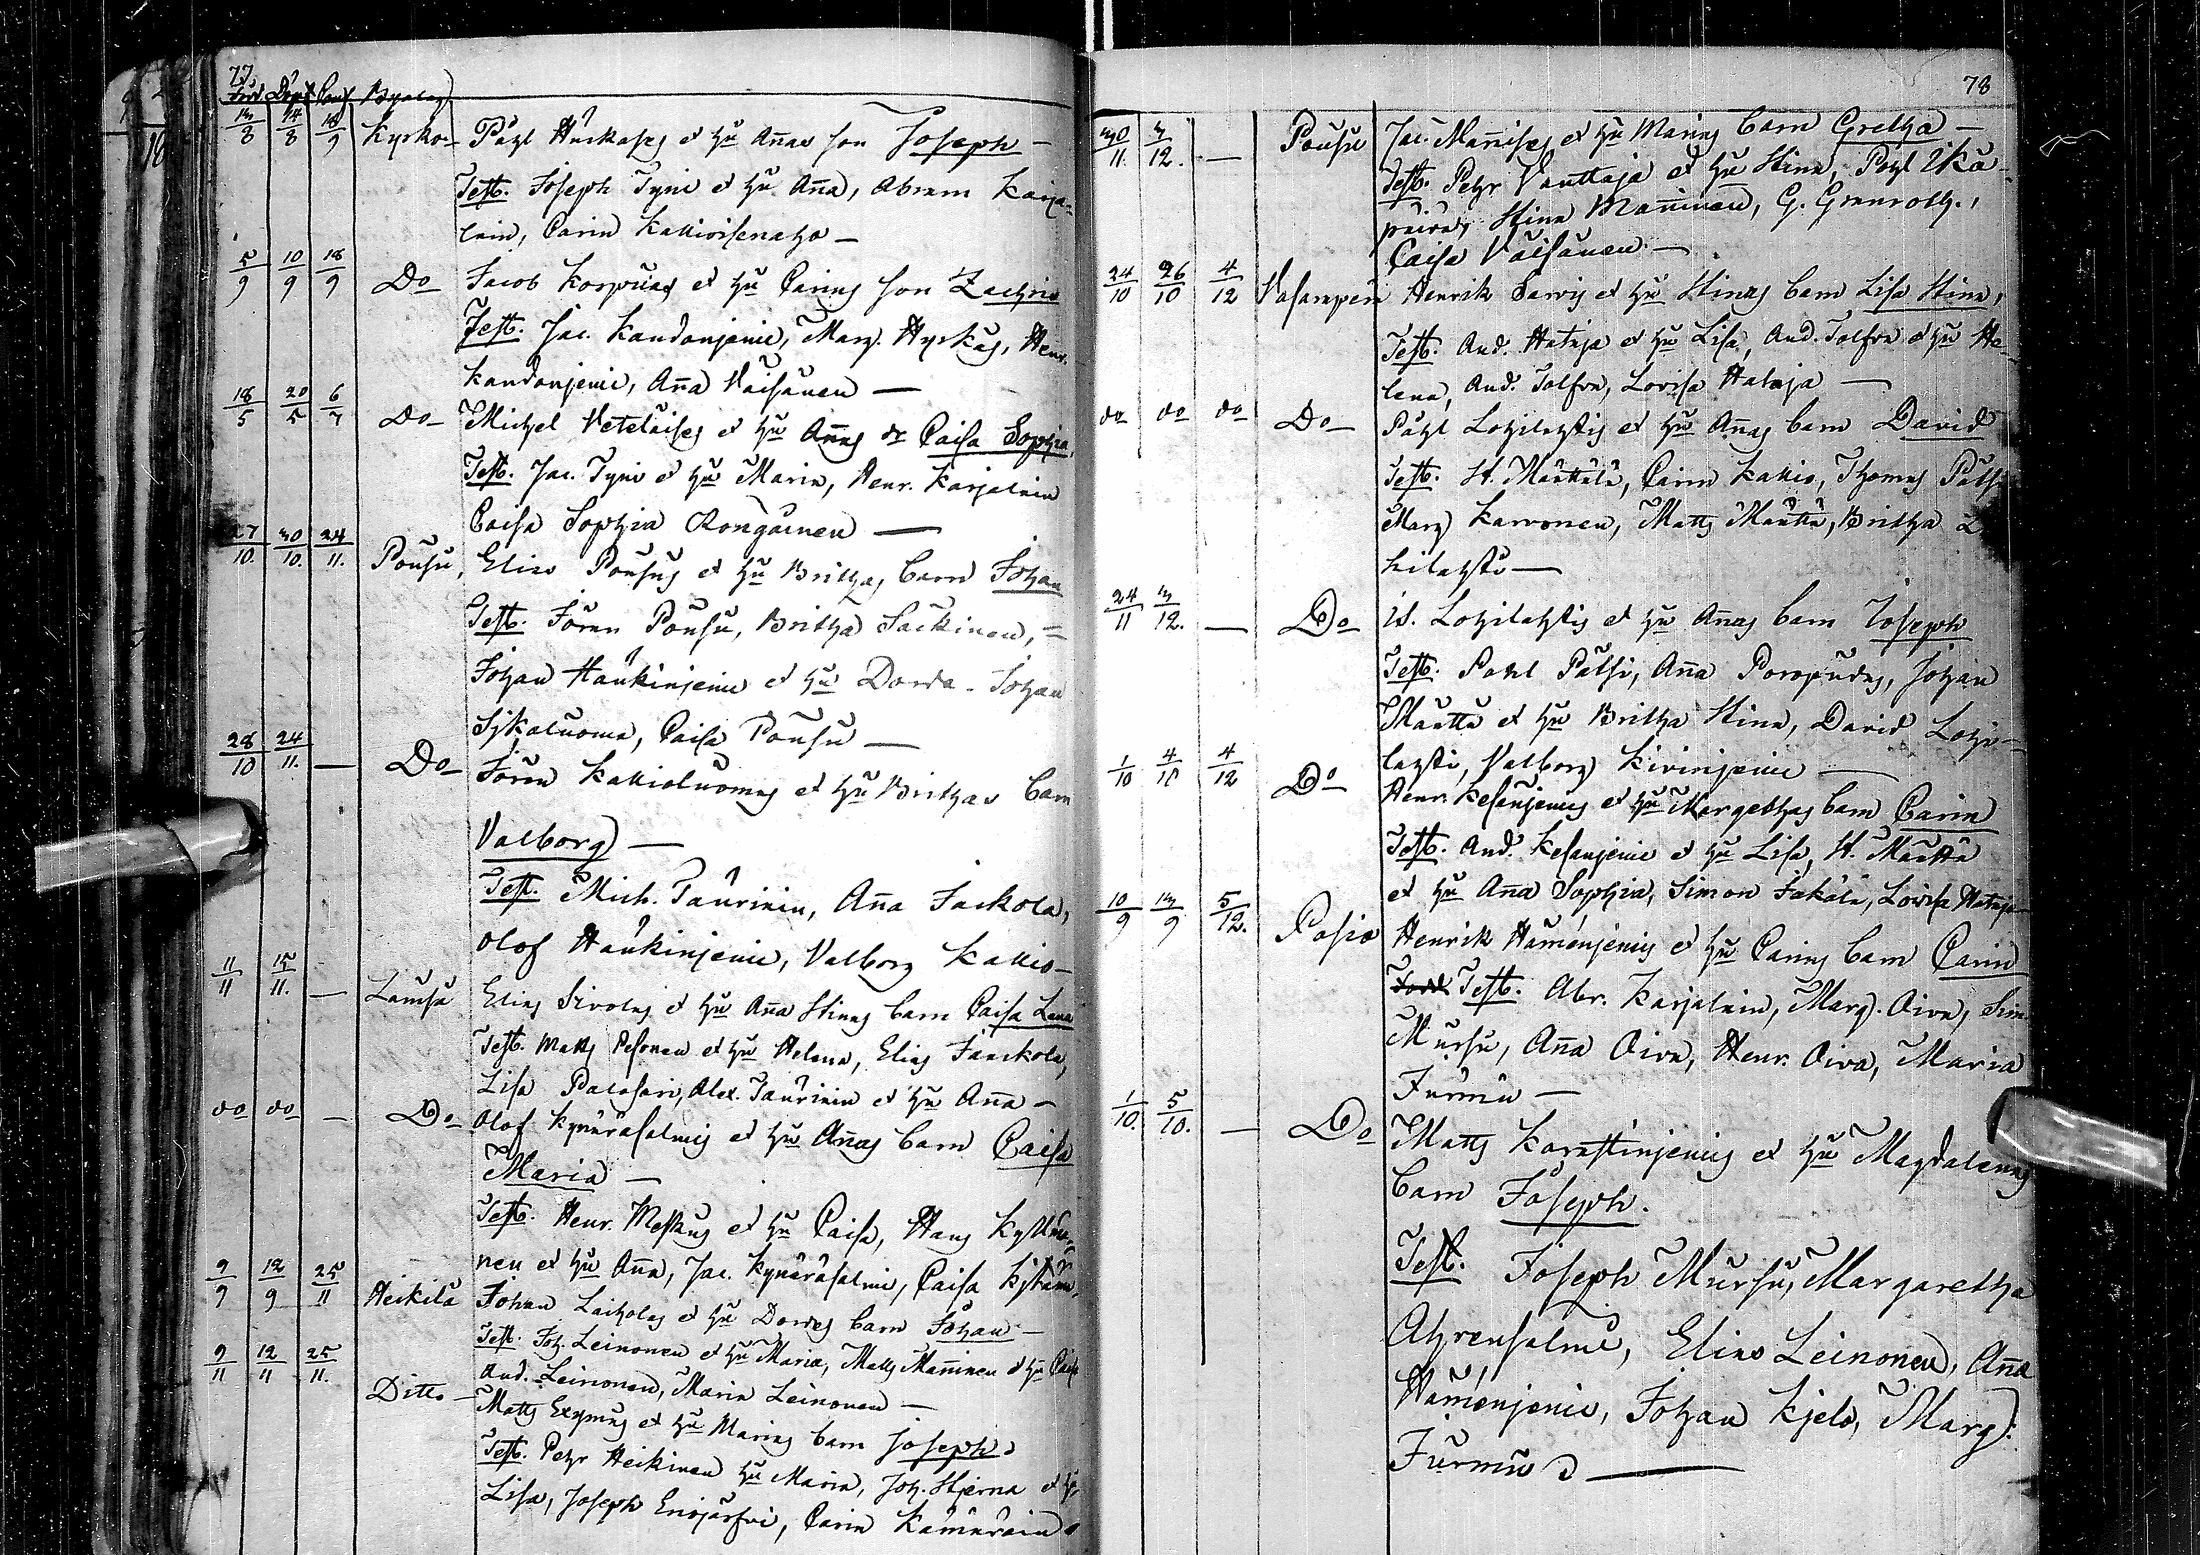 77
Född Döpt Conf Byalag
13/8 14/8 18/9 Kyrko- Påhl Hurkases et hu Annas son Joseph —
Test. Joseph Tyni et hu Anna, Abram Karja-
lain, Carin Kallioisenaho —
5/9 10/9 18/9 Do Jacob Korpuas et hu Carins son Zachris
Test. Jac. Kandonjemi, Marg. Hyrkäs, Henr.
Kandonjemi, Anna Väisänen —
18/5 20/5 6/7 Do Michel Veteläises et hu Annas dr Caisa Sophia,
Test. Jac. Tyni et hu Maria, Henr. Karjalain
Caisa Sophia Rongainen —
27/10. 30/10. 24/11. Pousu, Elias Pousus et hu Brithas barn Johan
Test. Jöran Pousu, Britha Säckinen, =
Johan Haukinjemi et hu Dordi - Johan
Sjkaluoma, Caisa Pousu —
28/10 24/11. — Do Jöran Kallioluomas et hu Brithas barn
Valborg —
Test. Mich. Taurinin, Anna Jaskola,
Olof Haukinjemi, Valborg Kallio-
11/11 15/11. — Lamsa Elias Sirolas et hu Anna Stinas barn Caisa Lena
Test. Matts Pesonen et hu Helena, Elias Jaaskola,
Lisa Palosari, Alex. Taurinin et hu Anna —
do do — Do Olof Kynäräsalmis et hu Annas barn Caisa
Maria —
Test. Henr. Meskus et hu Caisa, Hans Kyllö-
nen et hu Anna, Jac. Kynäräsalmi, Caisa
9/9 12/9 25/11 Heikilä Johan Laiholas et hu Dordes barn Johan —
Test. Joh. Leinonen et hu Maria, Matts Manninen et hu Caisa
And. Leinonen, Maria Leinonen —
9/11 12/11 25/11. Ditto — Matts Exymus et hu Marias barn Joseph
Test. Pehr Heikinen hu Maria, Joh. Stjerna et hu
Lisa, Joseph Enojärfvi, Carin Kämäräin
78
30/11. 3/12. — Pousu Jac. Mannises et hu Marias barn Gretha —
Test. Pehr Vanttaja et hu Stina, Pohl Ikä-
päivä, Stina Manninen, G. Granroth.,
Caisa Väisänen —
24/10 26/10 4/12 Vasarapera Henrik Sarvis et hu Stinas barn Lisa Stina,
Test. And. Hataja et hu Lisa, And. Tolfva et hu He-
lena, And. Tolfva, Lovisa Hataja —
do do do Do Påhl Lohilahtis et hu Annas barn David
Test. H. Määttälä, Carin Kallio, Thomas Pätsi
Marg Karvonen, Matts Määttä, Britha L
hilahti —
24/11 3/12. — Do Is. Lohilahtis et hu Annas barn Joseph
Test. Pohl Pätsi, Anna Poropudas, Johan
Määttä et hu Britha Stina, David Lohi-
lahti, Valborg Kivinjemi —
1/10 4/10 4/12 Do Henr. Kesänjemis et hu Margethas barn Carin
Test. And. Kesanjemi et hu Lisa, H. Määttä
et hu Anna Sophia, Simon Jakälä, Lovisa Hataja
10/9 13/9 5/12. Posio Henrik Hämenjemis et hu Carins barn Carin
Test. Abr. Karjalain, Marg. Oiva, Sim.
Mursu, Anna Oiva, Henr. Oiva, Maria
Jurmu —
1/10. 5/10. — Do Matts Karostinjemis et hu Magdalenas
barn Joseph.
Test. Joseph Mursu, Margaretha
Ahvensalmi, Elias Leinonen, Anna
Hämenjemi, Johan Kjelo, Marg:
Jurmu —